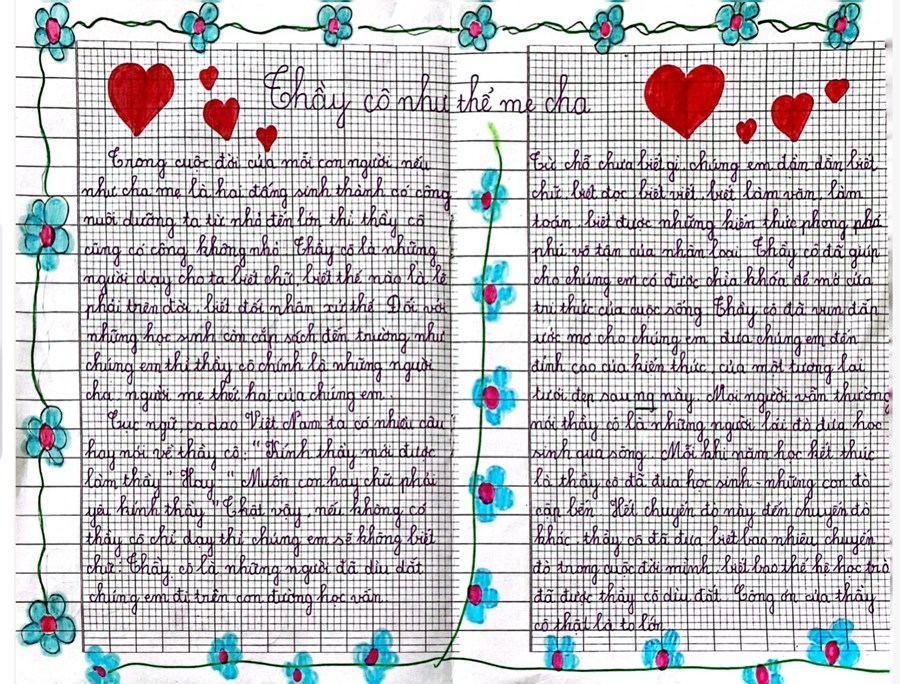 Thầy cô như thể mẹ cha
Trong cuộc đời của mỗi con người, nếu
như cha mẹ là hai đấng sinh thành có công
nuôi dưỡng ta từ nhỏ đến lớn thì thầy cô
cũng có công không nhỏ. Thầy cô là những
người dạy cho ta biết chữ, biết thế nào là lẽ
phải trên đời, biết đối nhân xử thế. Đối với
những học sinh còn cắp sách đến trường như
chúng em thì thầy cô chính là những người
cha, người mẹ thứ hai của chúng em.
Tục ngữ, ca dao Việt Nam ta có nhiều câu
hay nói về thầy cô: "Kính thầy mới được
làm thầy" Hay "Muốn con hay chữ phải
yêu kính thầy" Thật vậy, nếu không có
thầy cô chỉ dạy thì chúng em sẽ không biết
chữ. Thầy cô là những người đã dìu dắt
chúng em đi trên con đường học vấn.
Từ chỗ chưa biết gì, chúng em dần dần biết
chữ, biết đọc, biết viết, biết làm văn, làm
toán, biết được những kiến thức phong phú
phú vô tận của nhân loại. Thầy cô đã giúp
cho chúng em có được chìa khóa để mở cửa
tri thức của cuộc sống. Thầy cô đã vun đắp
ước mơ cho chúng em, đưa chúng em đến
đỉnh cao của kiến thức, của một tương lai
tươi đẹp sau này. Mọi người vẫn thường
nói thầy cô là những người lái đò đưa học
sinh qua sông. Mỗi khi năm học kết thúc
là thầy cô đã đưa học sinh - những con đò
cập bến. Hết chuyến đò này đến chuyến đò
khác, thầy cô đã đưa biết bao nhiêu chuyến
đò trong cuộc đời mình, biết bao thế hệ học trò
đã được thầy cô dìu dắt. Công ơn của thầy
cô thật là to lớn